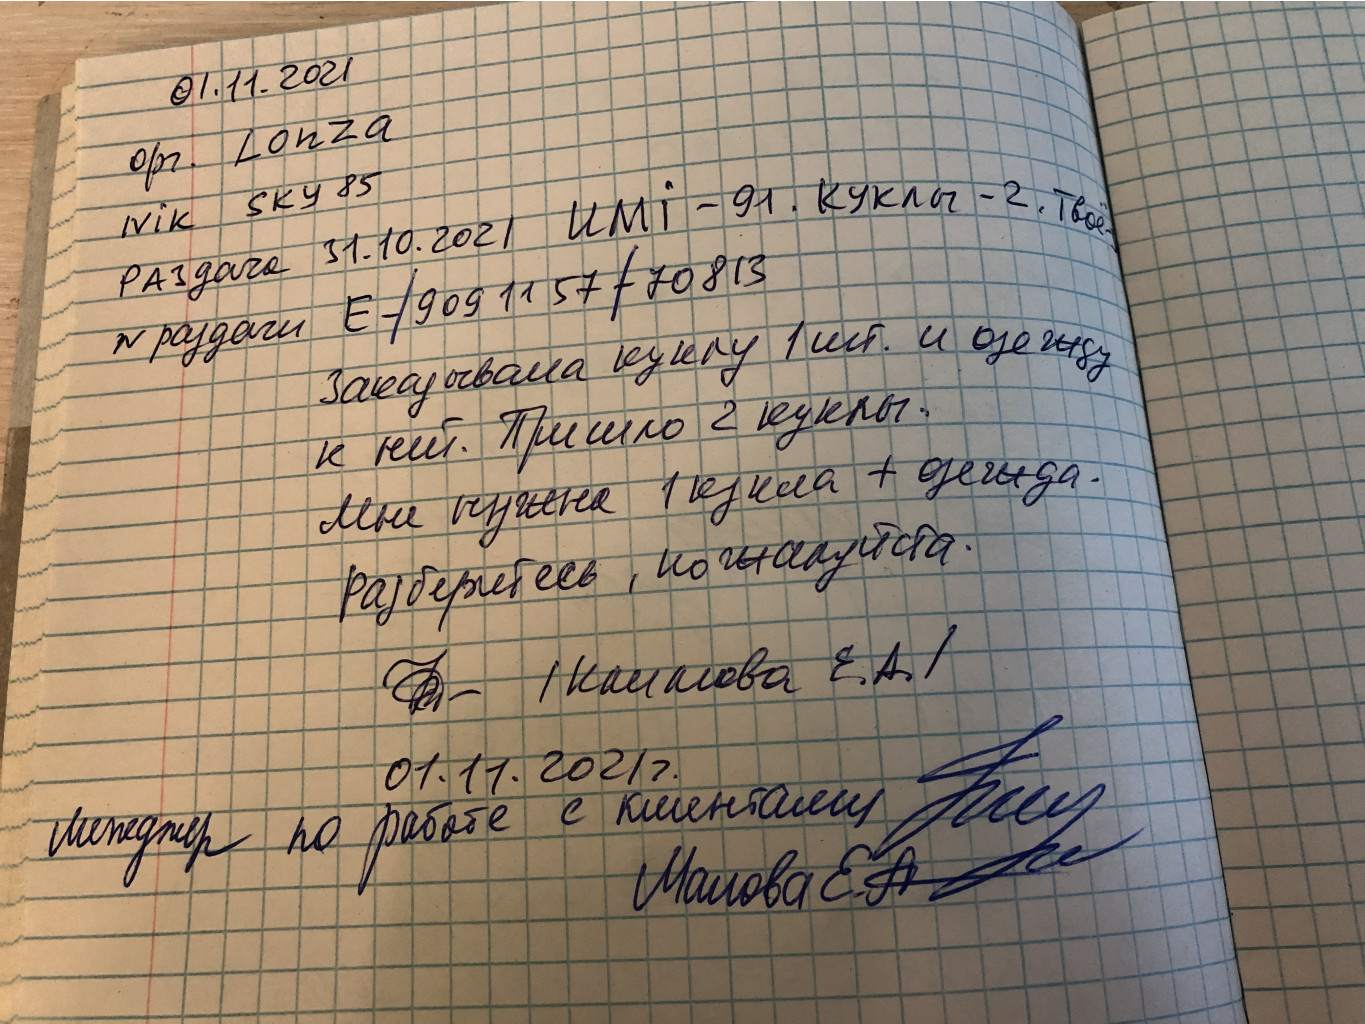 01.11.2021
орг. Lonza
Nik SKY85
Раздача 31.10.2021 KMi-91. Куклы-2. Твоё-
№ раздачи Е-/9091157/-70813
Заказывала куклу 1шт. и одежду
к ней. Пришло 2 куклы.
Мне нужна 1 кукла + одежда.
Разберитесь, пожалуйста.
/Климова Е.А./
01.11.2021г.
Менеджер по работе с клиентами
Малова Е.А